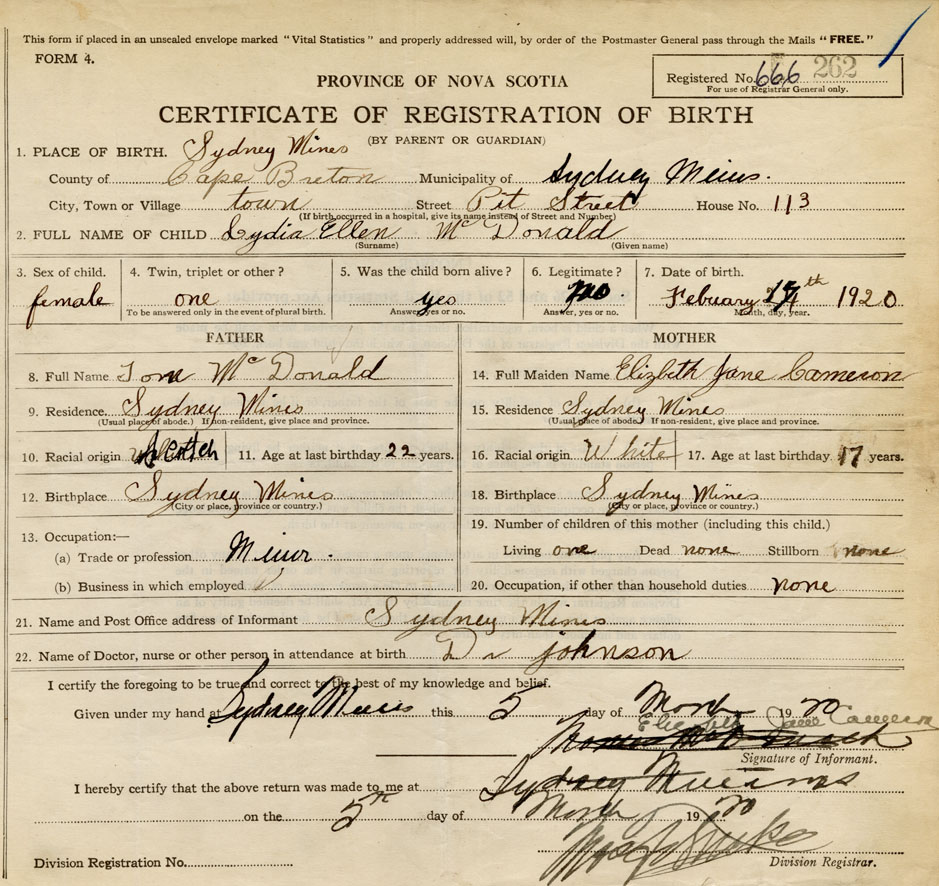 This form if placed in an unsealed envelope marked "Vital Statistics" and properly addressed will, by order of the Postmaster General pass through the Mails "FREE."
FORM 4.
PROVINCE OF NOVA SCOTIA
Registered No. 666 262
For use of Registrar General only.
CERTIFICATE OF REGISTRATION OF BIRTH
(BY PARENT OR GUARDIAN)
1. PLACE OF BIRTH. Sydney Mines
County of Cape Breton Municipality of Sydney Mines.
City, Town or Village town Street Pit Street House No. 113
(If birth occurred in a hospital, give its name instead of Street and Number)
2. FULL NAME OF CHILD Lydia Ellen McDonald
(Surname) (Given name)
3. Sex of child. 4. Twin, triplet or other? 5. Was the child born alive? 6. Legitimate? 7. Date of birth.
female one yes no Febuary th 1920
To be answered only in the event of plural birth. Answer, yes or no. Answer, yes or no. Month, day, year.
FATHER MOTHER
8. Full Name Tom McDonald 14. Full Maiden Name Elizbeth Jane Cameron
9. Residence Sydney Mines 15. Residence Sydney Mines
(Usual place of abode.) If non-resident, give place and province. (Usual place of abode.) If non-resident, give place and province.
10. Racial origin Scotch 11. Age at last birthday 22 years. 16. Racial origin White 17. Age at last birthday 17 years.
12. Birthplace Sydney Mines 18. Birthplace Sydney Mines
(City or place, province or country.) (City or place, province or country.)
13. Occupation:— 19. Number of children of this mother (including this child.)
(a) Trade or profession Miner. Living one Dead none Stillborn none
(b) Business in which employed 20. Occupation, if other than household duties none
21. Name and Post Office address of Informant Sydney Mines
22. Name of Doctor, nurse or other person in attendance at birth Dr johnson
I certify the foregoing to be true and correct to the best of my knowledge and belief.
Given under my hand at Sydney Mines this 5 day of 1920
Elizabeth Jane Cameron
Signature of Informant.
I hereby certify that the above return was made to me at Sydney Mines
on the 5th day of 1920
Division Registration No. Division Registrar.